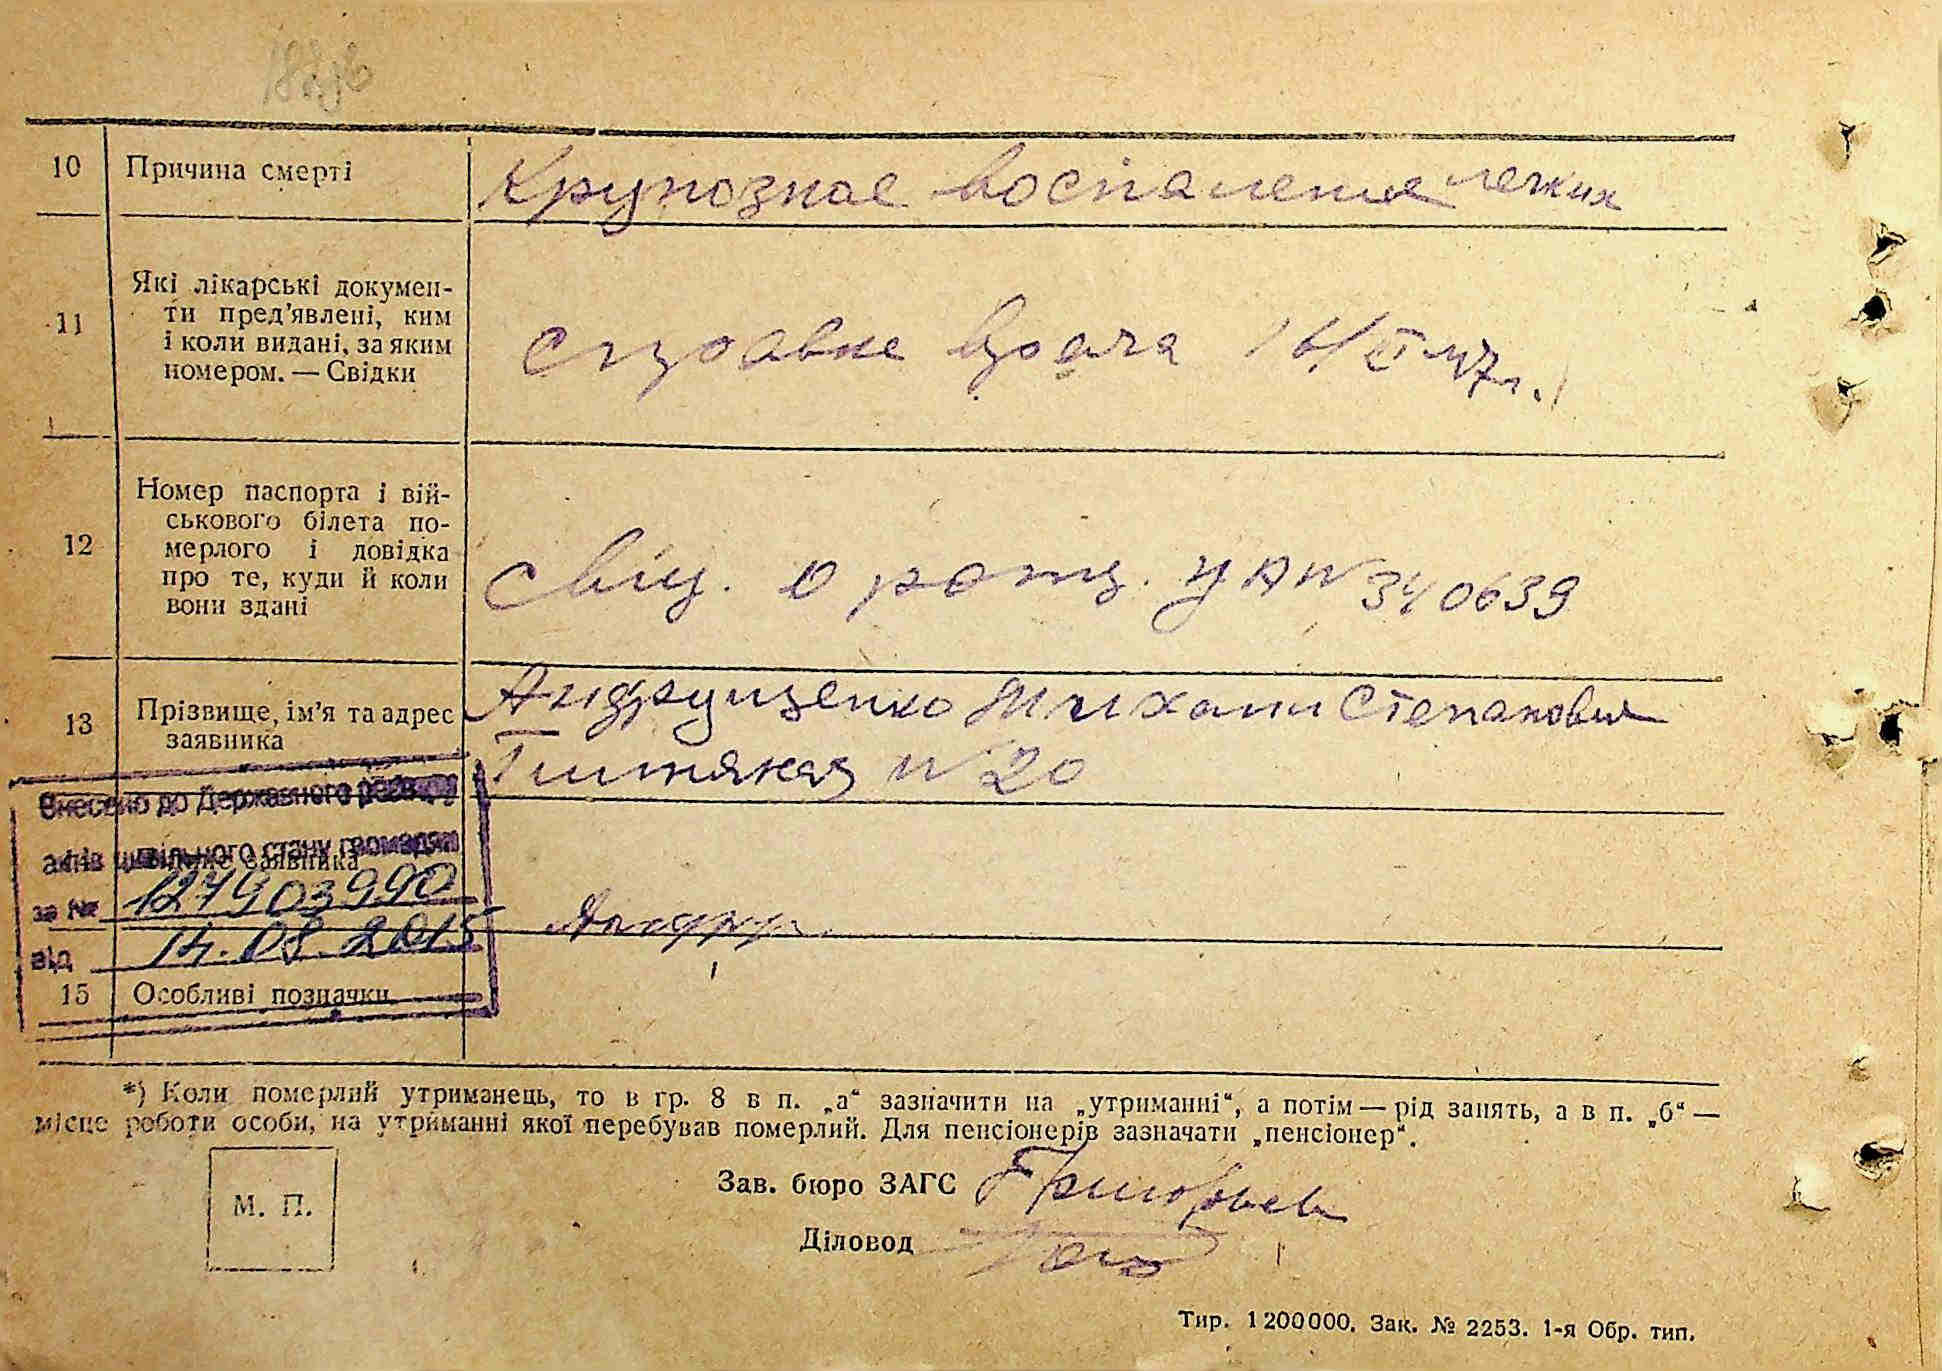 10 Причина смерті Крупозное воспаление легких
11 Які лікарські докумен-
ти пред'явлені, ким
і коли видані, за яким
номером. — Свідки
справка врача 16/II-47г.
12 Номер паспорта і вій-
ськового білета по-
мерлого і довідка
про те, куди й коли
вони здані
свид. о рожд. УА № 340639
13 Прізвище, ім'я та адрес
заявника
Андрущенко Михаил Степанович
№ 20
Внесено до Державного реєстру
актів цивільного стану громадян
заявника
за № 127903990
від 14.08.2015
15 Особливі позначки
*) Коли померлий утриманець, то в гр. 8 в п. „а“ зазначити на „утриманні“, а потім — рід занять, а в п. „б“ —
місце роботи особи, на утриманні якої перебував померлий. Для пенсіонерів зазначати „пенсіонер“.
М. П.
Зав. бюро ЗАГС Григорьев
Діловод
Тир. 1200000. Зак. № 2253. 1-я Обр. тип.